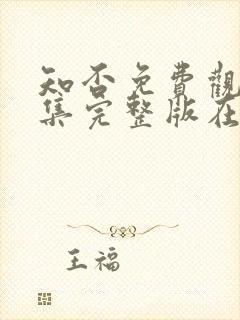 知否免費觀
集完整版在
王福